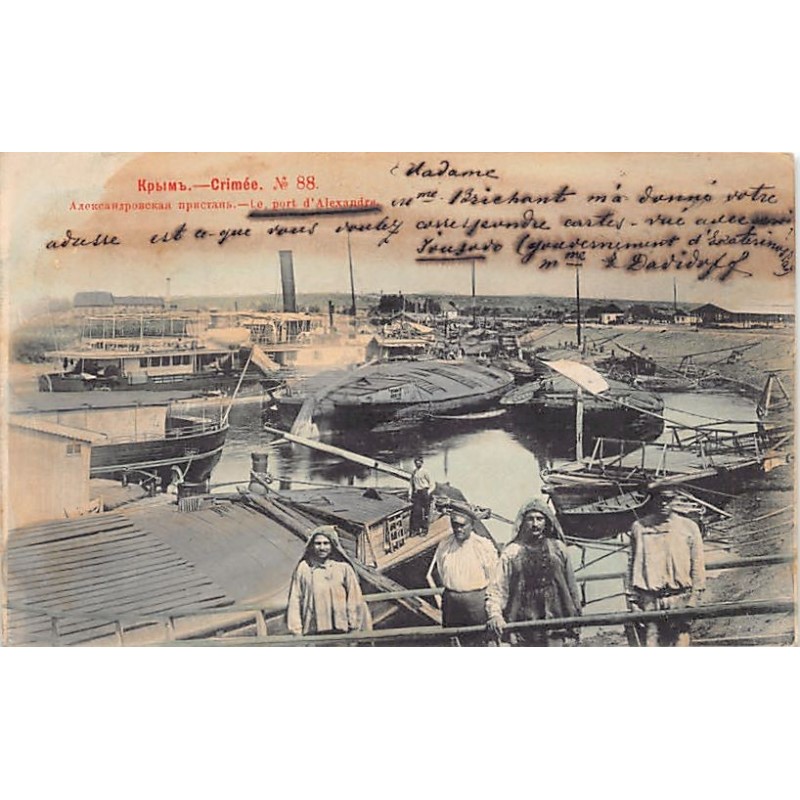 Крымъ.—Crimée. № 88.
Александровская пристань.—Le port d'Alexandra.
Madame
Mme Brichant m'a donné votre
adresse est-ce-que vous voulez correspondre cartes-vue avec moi
(gouvernement d'Ecaterinoslav)
Mme de Davidoff